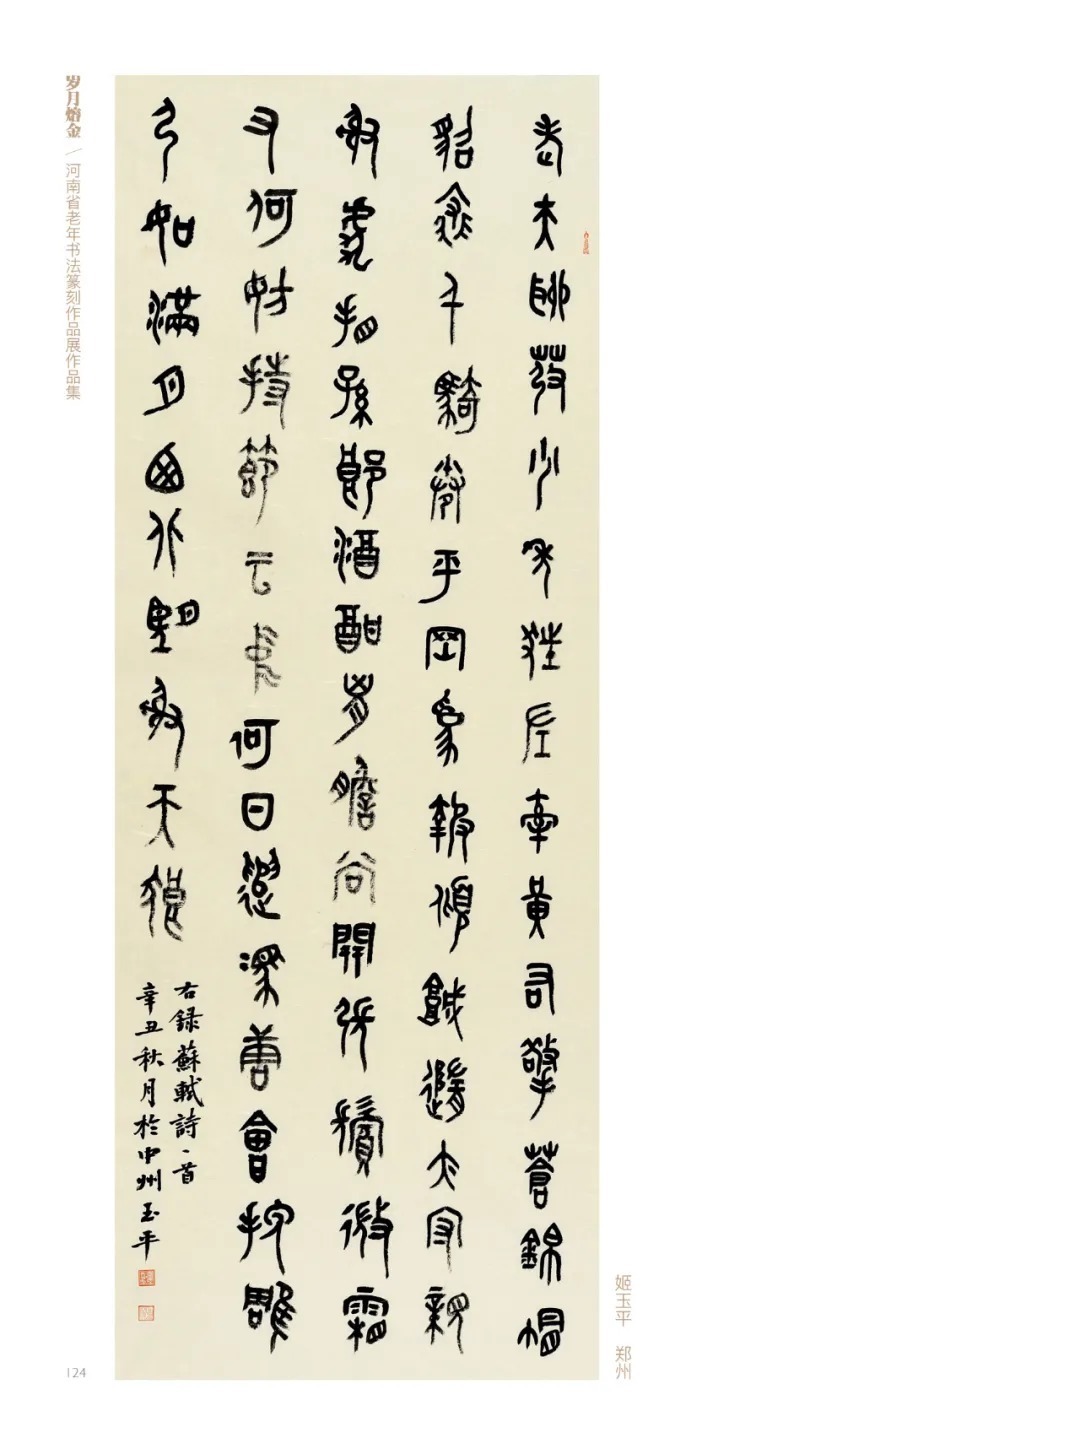 岁月熔金／河南省老年书法篆刻作品展作品集
老夫聊發少年狂左牽黃右擎蒼錦帽
貂裘千騎卷平岡為報傾城隨太守親
射虎看孫郎酒酣胸膽尚開張鬢微霜
又何妨持節云中何日遣馮唐會挽雕
弓如滿月西北望射天狼
右録蘇軾詩一首
辛丑秋月於中州玉平
姬玉平 郑州
124